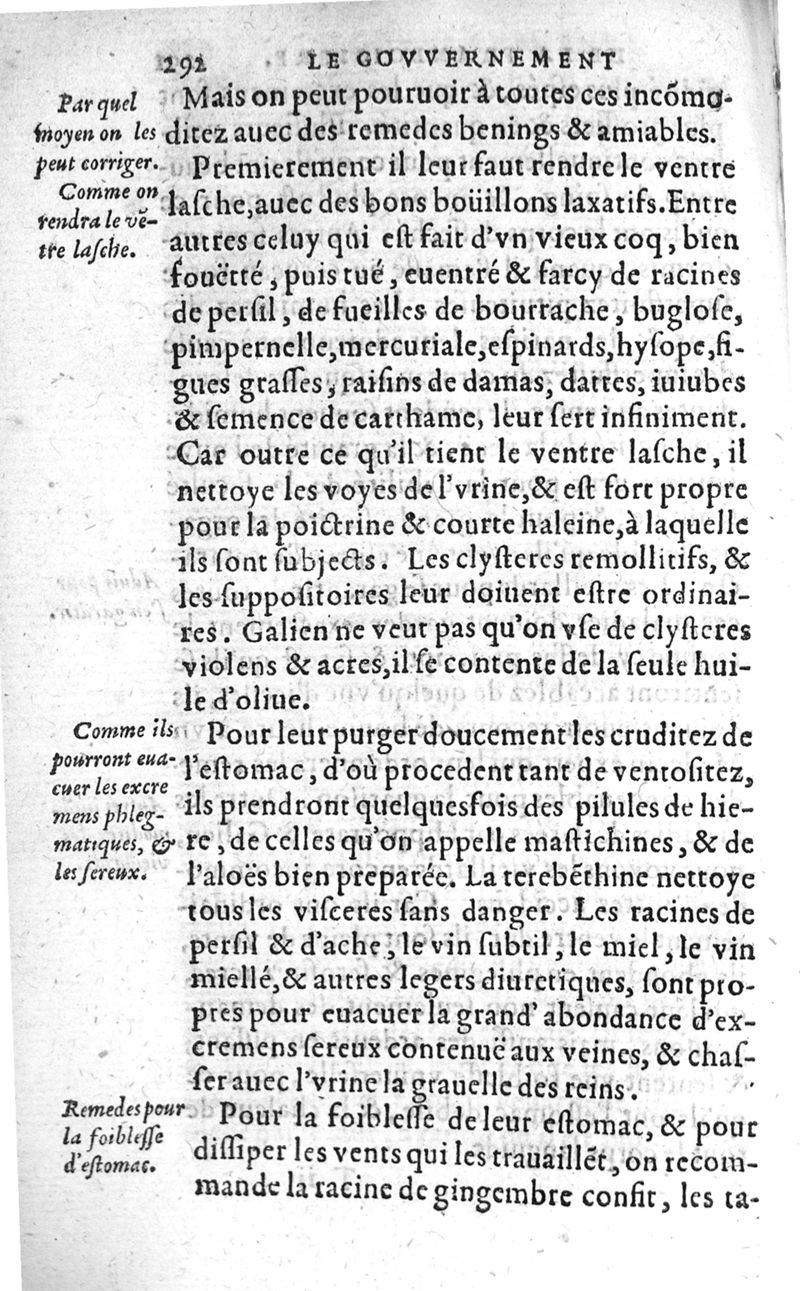 292 LE GOVVERNEMENT
Par quel
moyen on les
peut corriger.
Mais on peut pouruoir à toutes ces incõmo-
ditez auec des remedes benings & amiables.
Comme on
rendra le vẽ-
tre laſche.
Premierement il leur faut rendre le ventre
laſche, auec des bons boüillons laxatifs. Entre
autres celuy qui eſt fait d'vn vieux coq, bien
fouëtté, puis tué, euentré & farcy de racines
de perſil, de fueilles de bourrache, bugloſe,
pimpernelle, mercuriale, eſpinards, hyſope, fi-
gues graſſes, raiſins de damas, dattes, iuiubes
& ſemence de carthame, leur ſert infiniment.
Car outre ce qu'il tient le ventre laſche, il
nettoye les voyes de l'vrine, & eſt fort propre
pour la poictrine & courte haleine, à laquelle
ils ſont ſubjects. Les clyſteres remollitifs, &
les ſuppoſitoires leur doiuent eſtre ordinai-
res. Galien ne veut pas qu'on vſe de clyſteres
violens & acres, il ſe contente de la ſeule hui-
le d'oliue.
Comme ils
pourront eua-
cuer les excre
mens phleg-
matiques, &
les ſereux.
Pour leur purger doucement les cruditez de
l'eſtomac, d'où procedent tant de ventoſitez,
ils prendront quelquesfois des pilules de hie-
re, de celles qu'on appelle maſtichines, & de
l'aloës bien preparée. La terebẽthine nettoye
tous les viſceres ſans danger. Les racines de
perſil & d'ache, le vin ſubtil, le miel, le vin
miellé, & autres legers diuretiques, ſont pro-
pres pour euacuer la grand' abondance d'ex-
cremens ſereux contenuë aux veines, & chaſ-
ſer auec l'vrine la grauelle des reins.
Remedes pour
la foibleſſe
d'eſtomac.
Pour la foibleſſe de leur eſtomac, & pour
diſſiper les vents qui les trauaillẽt, on recom-
mande la racine de gingembre confit, les ta-